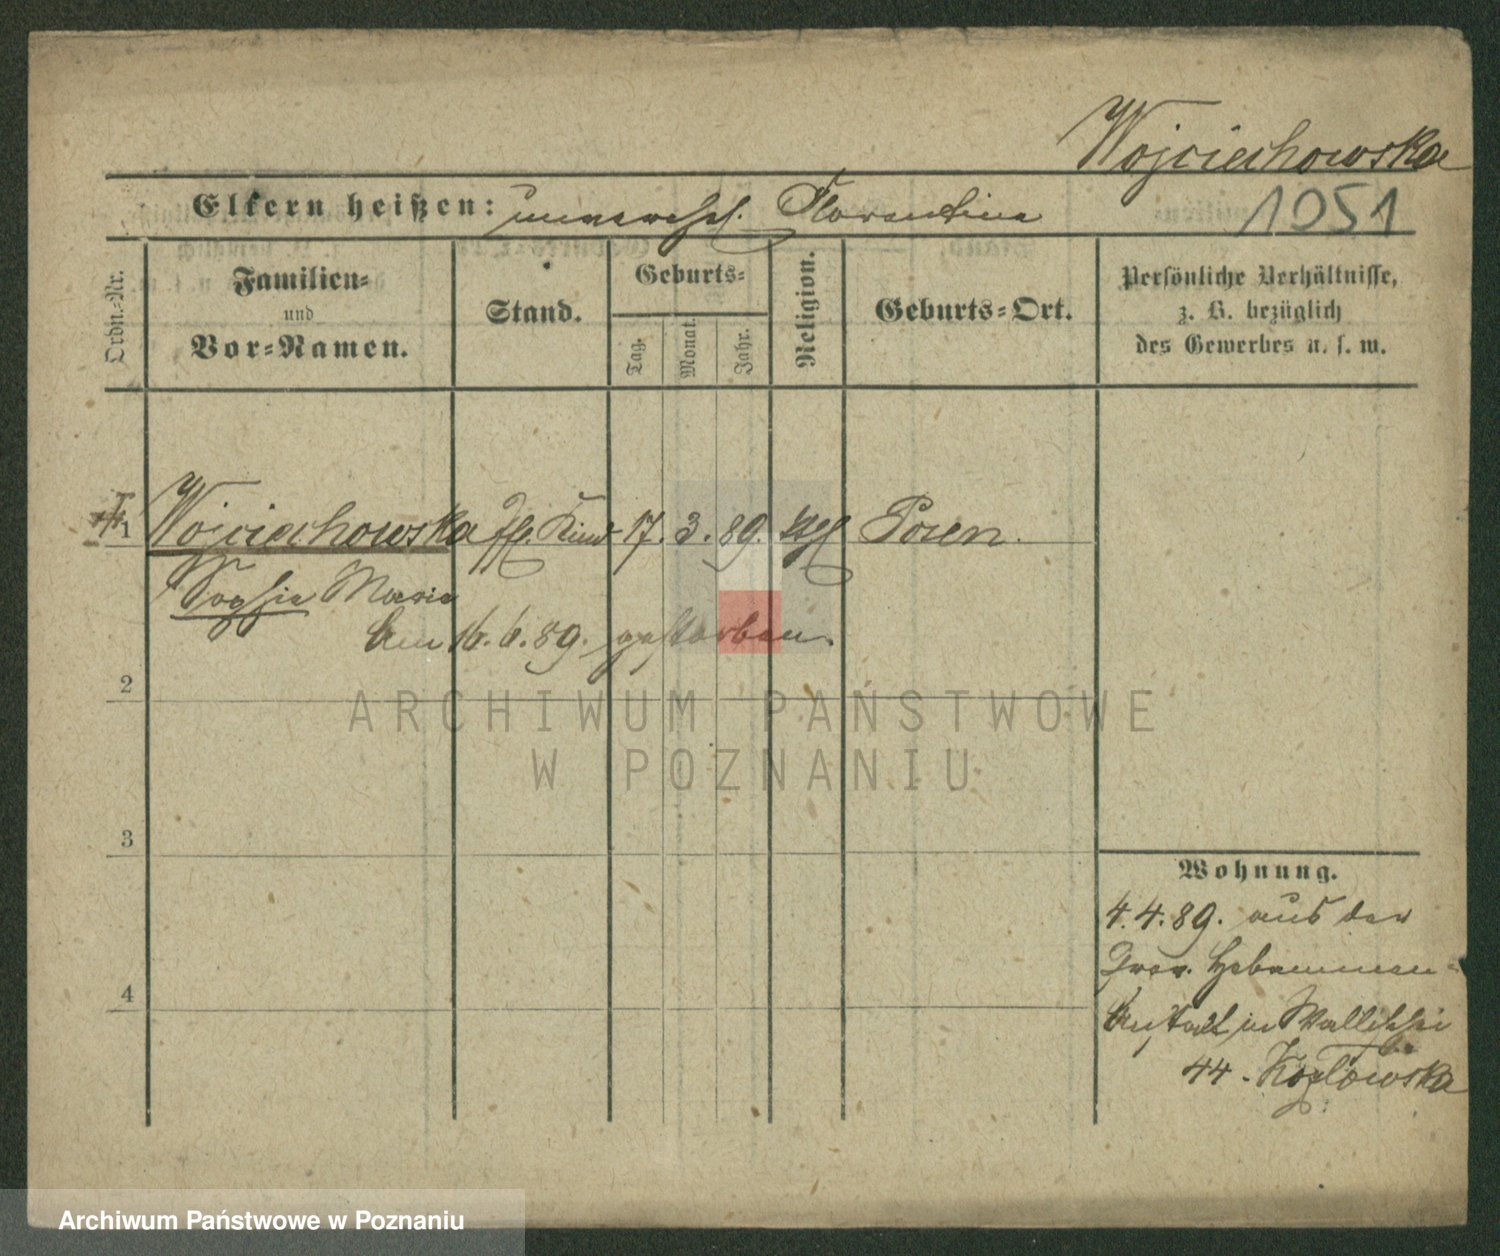 Wojciechowska
Eltern heißen: unverehel. Florentine
1051
Ordn.-Nr.
Familien-
und
Vor-Namen.
Stand.
Geburts-
Tag.
Monat.
Jahr.
Religion.
Geburts-Ort.
Persönliche Verhältnisse,
z. B. bezüglich
des Gewerbes u. s. w.
1 Wojciechowska Kind 17. 3. 89. kth Posen.
Sophie Marie
Am 16. 6. 89. gestorben.
2
ARCHIWUM PAŃSTWOWE
W POZNANIU
3
Wohnung.
4. 4. 89. aus der
Prov. Hebammen-
4
Anstalt in Wallischei
44 - Kozlowska
Archiwum Państwowe w Poznaniu